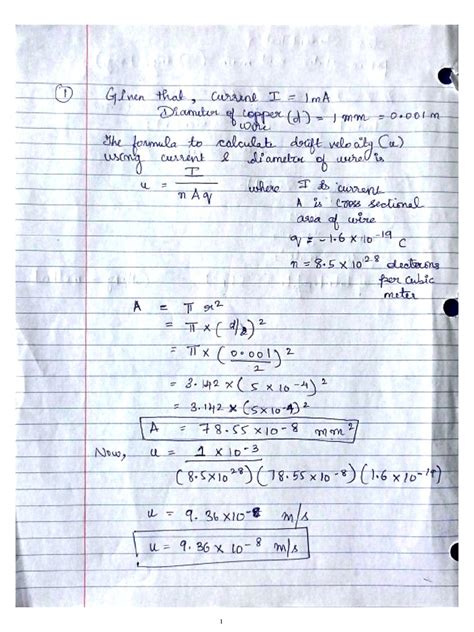 ① Given that, current I = 1mA
Diameter of copper (d) = 1 mm = 0.001 m
wire
The formula to calculate drift velocity (u)
using current & diameter of wire is
u = I / n A q where I is current
A is cross sectional
area of wire
q = -1.6 × 10⁻¹⁹ C
n = 8.5 × 10²⁸ electrons
per cubic
meter
A = π r²
= π × (d/2)²
= π × (0.001/2)²
= 3.142 × (5 × 10⁻⁴)²
= 3.142 × (5×10⁻⁴)²
A = 78.55 × 10⁻⁸ mm²
Now, u = 1 × 10⁻³ / (8.5×10²⁸)(78.55 × 10⁻⁸)(1.6 × 10⁻¹⁹)
u = 9.36 × 10⁻⁸ m/s
u = 9.36 × 10⁻⁸ m/s
1